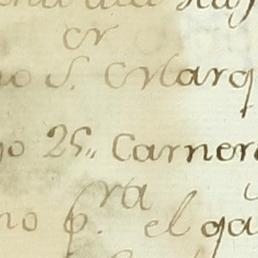 er
no S. Marq
go 25,, Carner
ra
no p. el ga